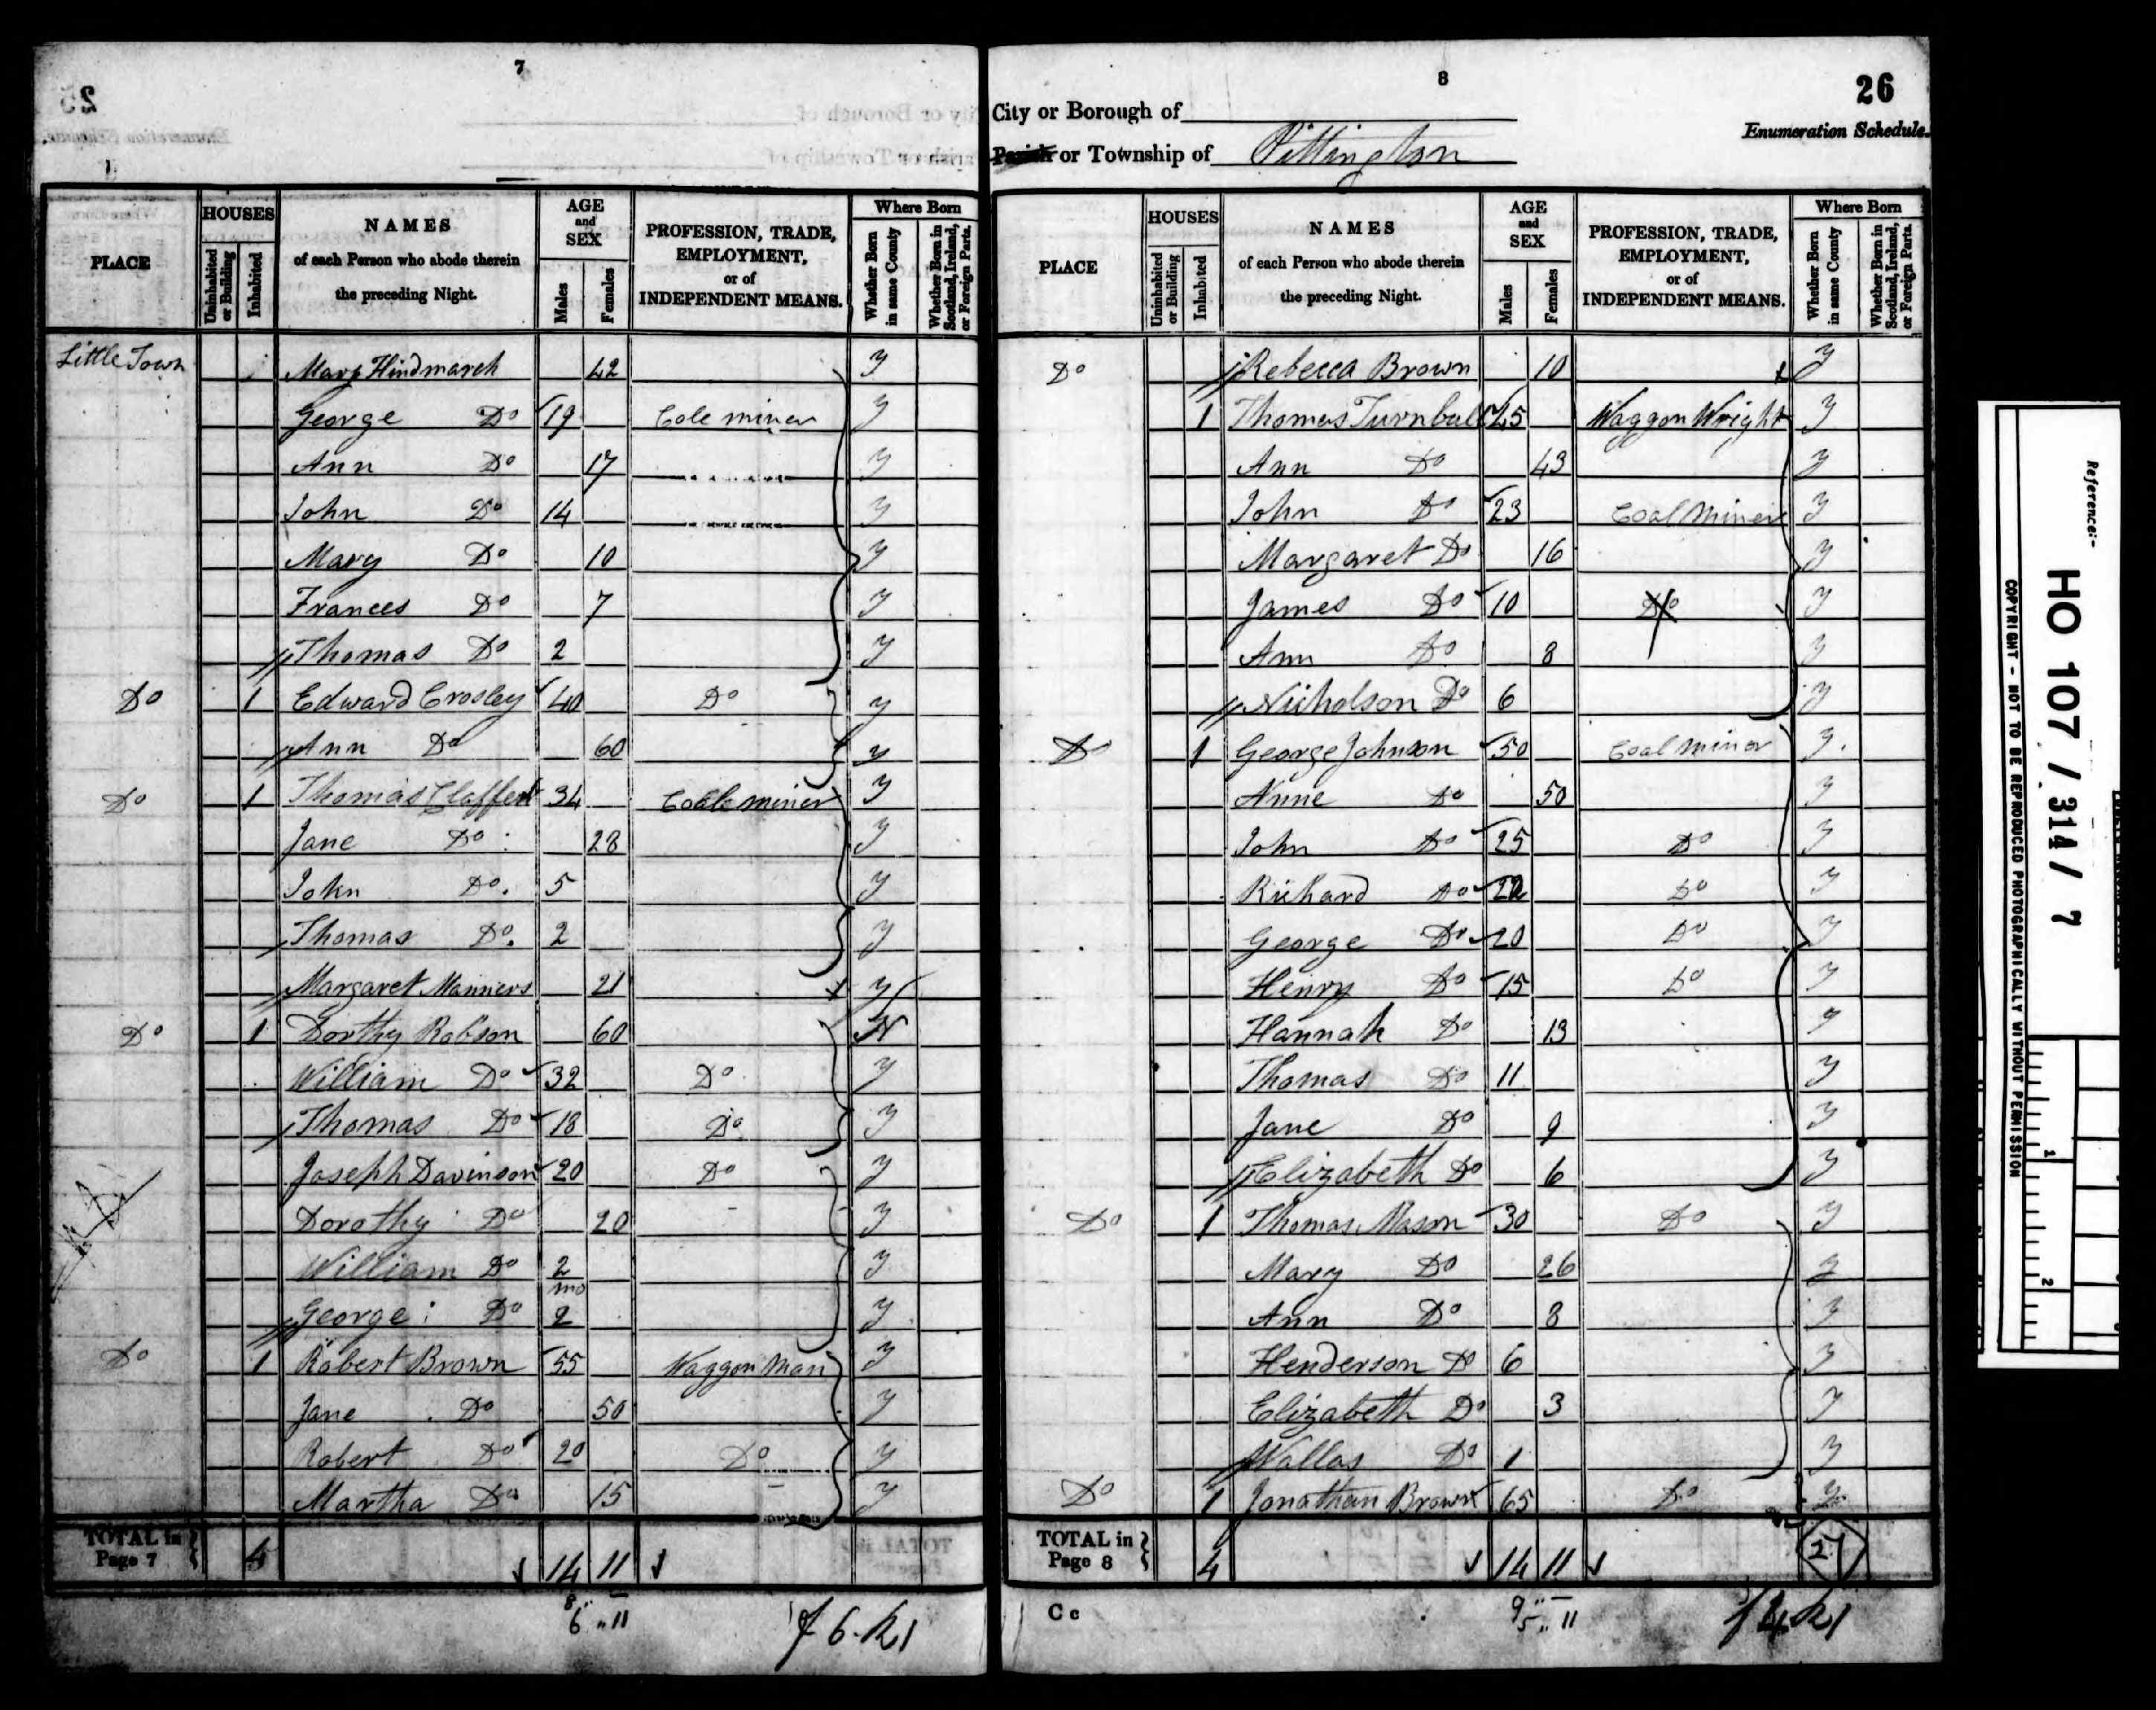 7
PLACE HOUSES Uninhabited or Building Inhabited NAMES of each Person who abode therein the preceding Night. AGE and SEX Males Females PROFESSION, TRADE, EMPLOYMENT, or of INDEPENDENT MEANS. Where Born Whether Born in same County Whether Born in Scotland, Ireland, or Foreign Parts.
Little Town Mary Hindmarch 42 y
George Do 19 Cole miner y
Ann Do 17 y
John Do 14 y
Mary Do 10 y
Frances Do 7 y
Thomas Do 2 y
Do 1 Edward Crosley 40 Do y
Ann Do 60 y
Do 1 Thomas 34 miner y
Jane Do 28 y
John Do. 5 y
Thomas Do. 2 y
Margaret Manners 21 y
Do 1 Dorthy Robson 60 N
William Do 32 Do y
Thomas Do 18 Do y
Joseph Davinson 20 Do y
Dorothy Do 20 y
William Do 2 y
George Do mo 2 y
Do 1 Robert Brown 55 Waggon Man y
Jane Do 50 y
Robert Do 20 Do y
Martha Do 15 y
TOTAL in Page 7 4 14 11
8 "
6 " 11
8
26
City or Borough of
Enumeration Schedule.
Parish or Township of Pittington
PLACE HOUSES Uninhabited or Building Inhabited NAMES of each Person who abode therein the preceding Night. AGE and SEX Males Females PROFESSION, TRADE, EMPLOYMENT, or of INDEPENDENT MEANS. Where Born Whether Born in same County Whether Born in Scotland, Ireland, or Foreign Parts.
Do Rebecca Brown 10 y
1 Thomas Turnbull 45 Waggon Wright y
Ann Do 43 y
John Do 23 Coal Miner y
Margaret Do 16 y
James Do 10 Do y
Ann Do 8 y
Nicholson Do 6 y
Do 1 George Johnson 50 Coal miner y.
Anne Do 50 y
John Do 25 Do y
Richard Do 22 Do y
George Do 20 Do y
Henry Do 15 Do y
Hannah Do 13 y
Thomas Do 11 y
Jane Do 9 y
Elizabeth Do 6 y
Do 1 Thomas Mason 30 Do y
Mary Do 26 y
Ann Do 8 y
Henderson Do 6 y
Elizabeth Do 3 y
Wallas Do 1 y
Do 1 Jonathan Brown 65 Do y
TOTAL in Page 8 4 14 11
C c
9 "
5 " 11
Reference:-
HO 107 / 311 / 7
COPYRIGHT - NOT TO BE REPRODUCED PHOTOGRAPHICALLY WITHOUT PERMISSION
1
2